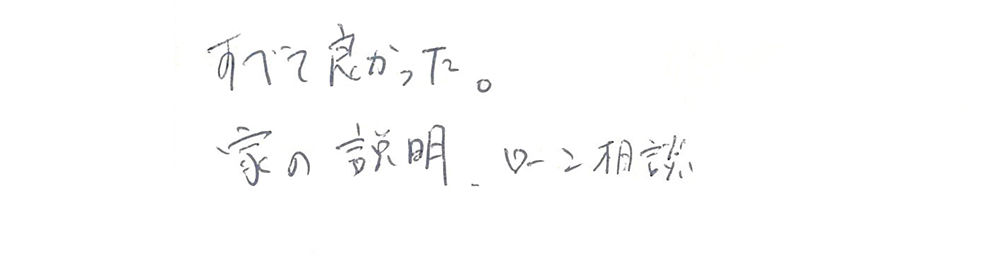 すべて良かった。
家の説明、ローン相談